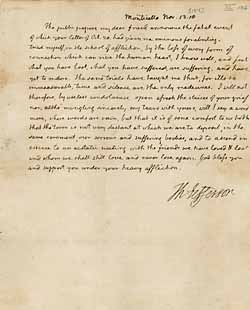 Monticello Nov. 13. 18.
The public papers, my dear friend, announce the fatal event
of which your letter of Oct. 20. had given me ominous foreboding.
tried myself, in the school of affliction, by the loss of every form of
connection which can rive the human heart, I know well, and feel
what you have lost, what you have suffered, are suffering, and have
yet to endure. the same trials have taught me that, for ills so
immeasurable, time and silence are the only medecines. I will not
therefore, by useless condolances, open afresh the sluices of your grief
nor, altho' mingling sincerely my tears with yours, will I say a word
more, where words are vain, but that it is of some comfort to us both
that the term is not very distant at which we are to deposit, in the
same cerement, our sorrows and suffering bodies, and to ascend in
essence to an ecstatic meeting with the friends we have loved & lost
and whom we shall still love and never lose again. God bless you
and support you under your heavy affliction.
Th: Jefferson